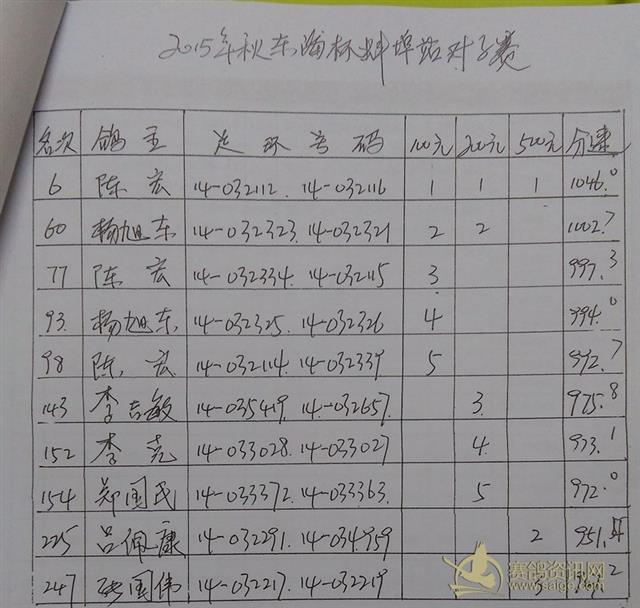 2015年秋东瀚杯蚌埠站对子赛
名次 鸽主 足环号码 100元 200元 500元 分速
6 陈宏 14-032112. 14-032116 1 1 1 1046.0
60 杨旭东 14-032323. 14-032321 2 2 1002.7
77 陈宏 14-032334. 14-032115 3 997.3
93. 杨旭东 14-032325. 14-032326 4 994.0
98 陈宏 14-032114. 14-032339 5 992.7
143 李吉敏 14-035419. 14-032657. 3. 975.8
152 李克 14-033028. 14-033027 4. 973.1
154 郑国民 14-033372. 14-033363. 5 972.0
225 吕佩康 14-032291. 14-034959 2 951.4
247 张国伟 14-032217. 14-032219
赛鸽资讯网
www.saige.com